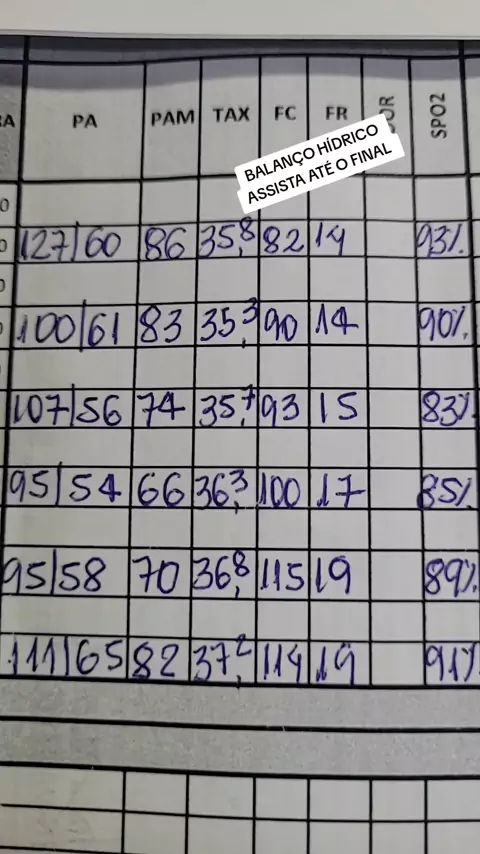 RA PA PAM TAX FC FR DOR SPO2
BALANÇO HÍDRICO
ASSISTA ATÉ O FINAL
127/60 86 35,8 82 14 93%
100/61 83 35,3 90 14 90%
107/56 74 35,7 93 15 83%
95/54 66 36,3 100 17 85%
95/58 70 36,8 115 19 89%
111/65 82 37,2 114 19 91%